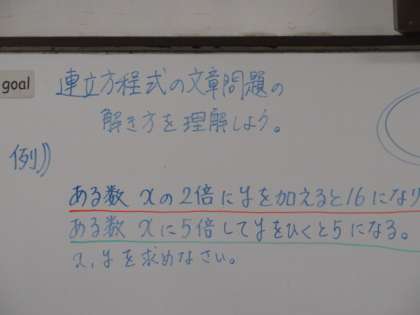 goal
連立方程式の文章問題の
解き方を理解しよう。
例))
ある数 xの2倍にyを加えると16になり
ある数 xに5倍してyをひくと5になる。
x, yを求めなさい。